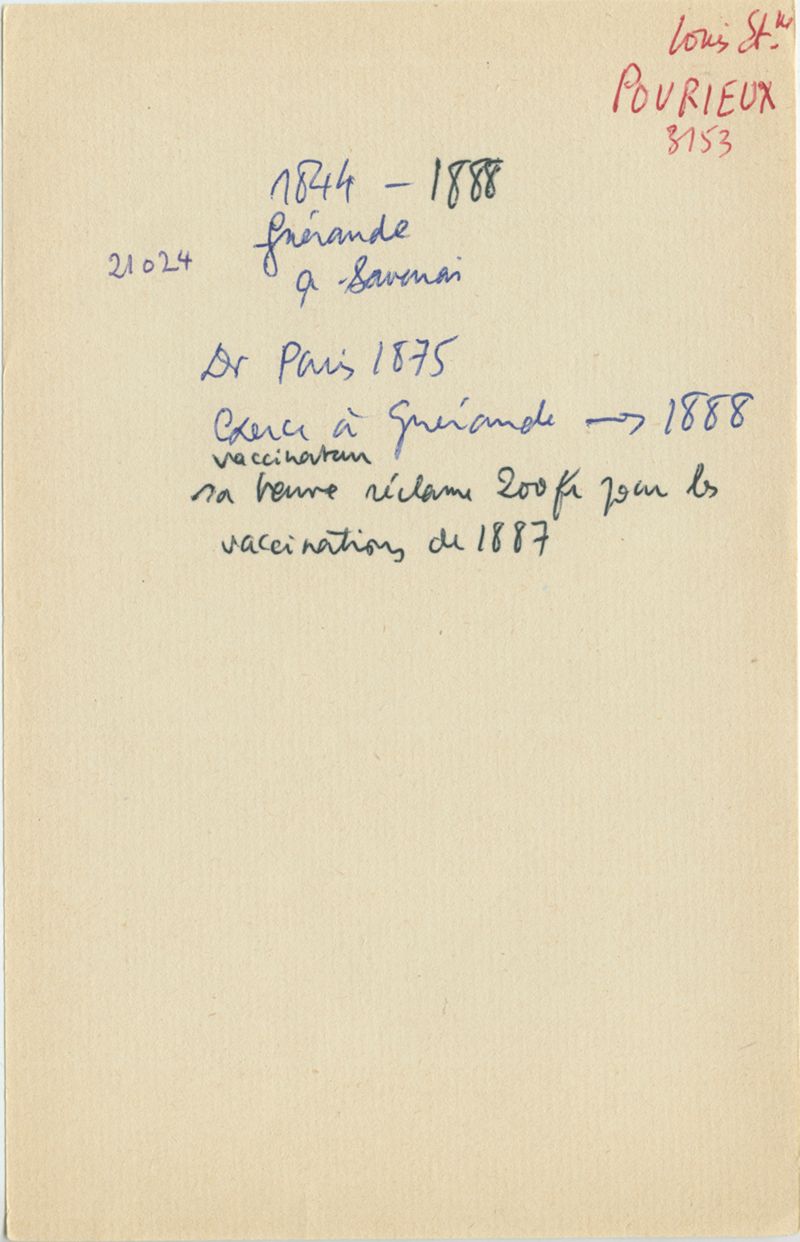 Louis St.
POURIEUX
3153
1844 – 1888
Guérande
21024
à Savenai
Dr Paris 1875
Exerce à Guérande → 1888
vaccinateur
sa veuve réclame 200 fr pour les
vaccinations de 1887